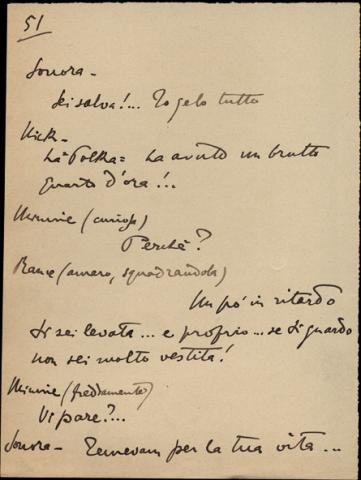 51
Sonora -
Sei salva!... Io gelo tutto
Nick -
La Polka = ha avuto un brutto
quarto d'ora!...
Minnie (curiosa)
Perchè?
Rance (amaro, squadrandola)
Un pó in ritardo
ti sei levata... e proprio... se ti guardo
non sei molto vestita!
Minnie (freddamente)
Vi pare?...
Sonora - Temevam per la tua vita...